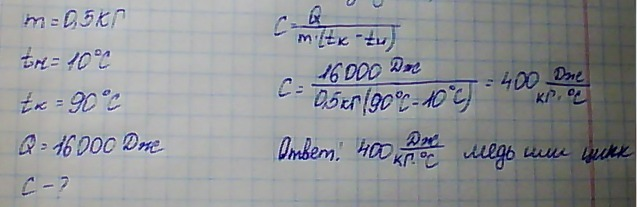 m = 0,5 кг
tн = 10°C
tк = 90°C
Q = 16000 Дж
C - ?
C = Q / m·(tк - tн)
C = 16000 Дж / 0,5кг(90°C - 10°C) = 400 Дж / кг·°C
Ответ: 400 Дж / кг·°C медь или цинк